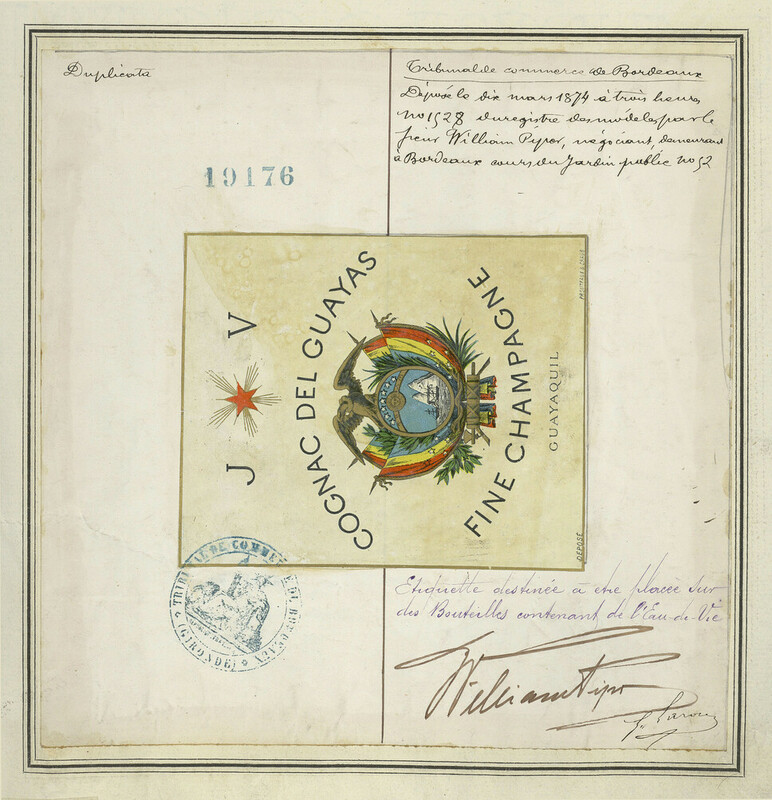 Duplicata
19176
Tribunal de commerce de Bordeaux
Déposé le dix mars 1874 à trois heures
no 1528 du registre des modèles par le
sieur William Piper, négociant, demeurant
à Bordeaux cours du Jardin public no 52
J V
COGNAC DEL GUAYAS
FINE CHAMPAGNE
GUAYAQUIL
DEPOSÉ
TRIBUNAL DE COMMERCE DE BORDEAUX
(GIRONDE)
Etiquette destinée à etre placée sur
des Bouteilles contenant de l'Eau-de-Vie
William Piper